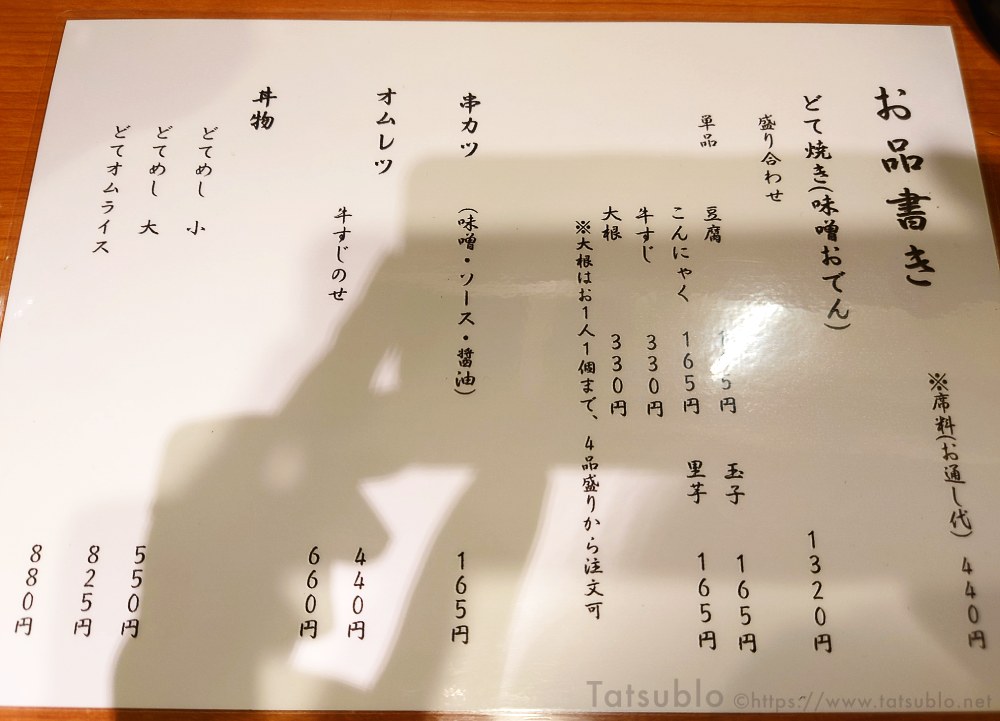 お品書き
※席料(お通し代) 440円
どて焼き(味噌おでん)
盛り合わせ 1320円
単品
豆腐
玉子 165円
こんにゃく 165円
里芋 165円
牛すじ 330円
大根 330円
※大根はお1人1個まで、4品盛りから注文可
串カツ (味噌・ソース・醤油) 165円
オムレツ 440円
牛すじのせ 660円
丼物
どてめし 小 550円
どてめし 大 825円
どてオムライス 880円
Tatsublo ©https://www.tatsublo.net